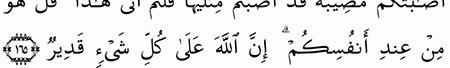 أَصَٰبَتۡكُم مُّصِيبَةٞ قَدۡ أَصَبۡتُم مِّثۡلَيۡهَا قُلۡتُمۡ أَنَّىٰ هَٰذَاۖ قُلۡ هُوَ
مِنۡ عِندِ أَنفُسِكُمۡۗ إِنَّ ٱللَّهَ عَلَىٰ كُلِّ شَيۡءٖ قَدِيرٞ ١٦٥